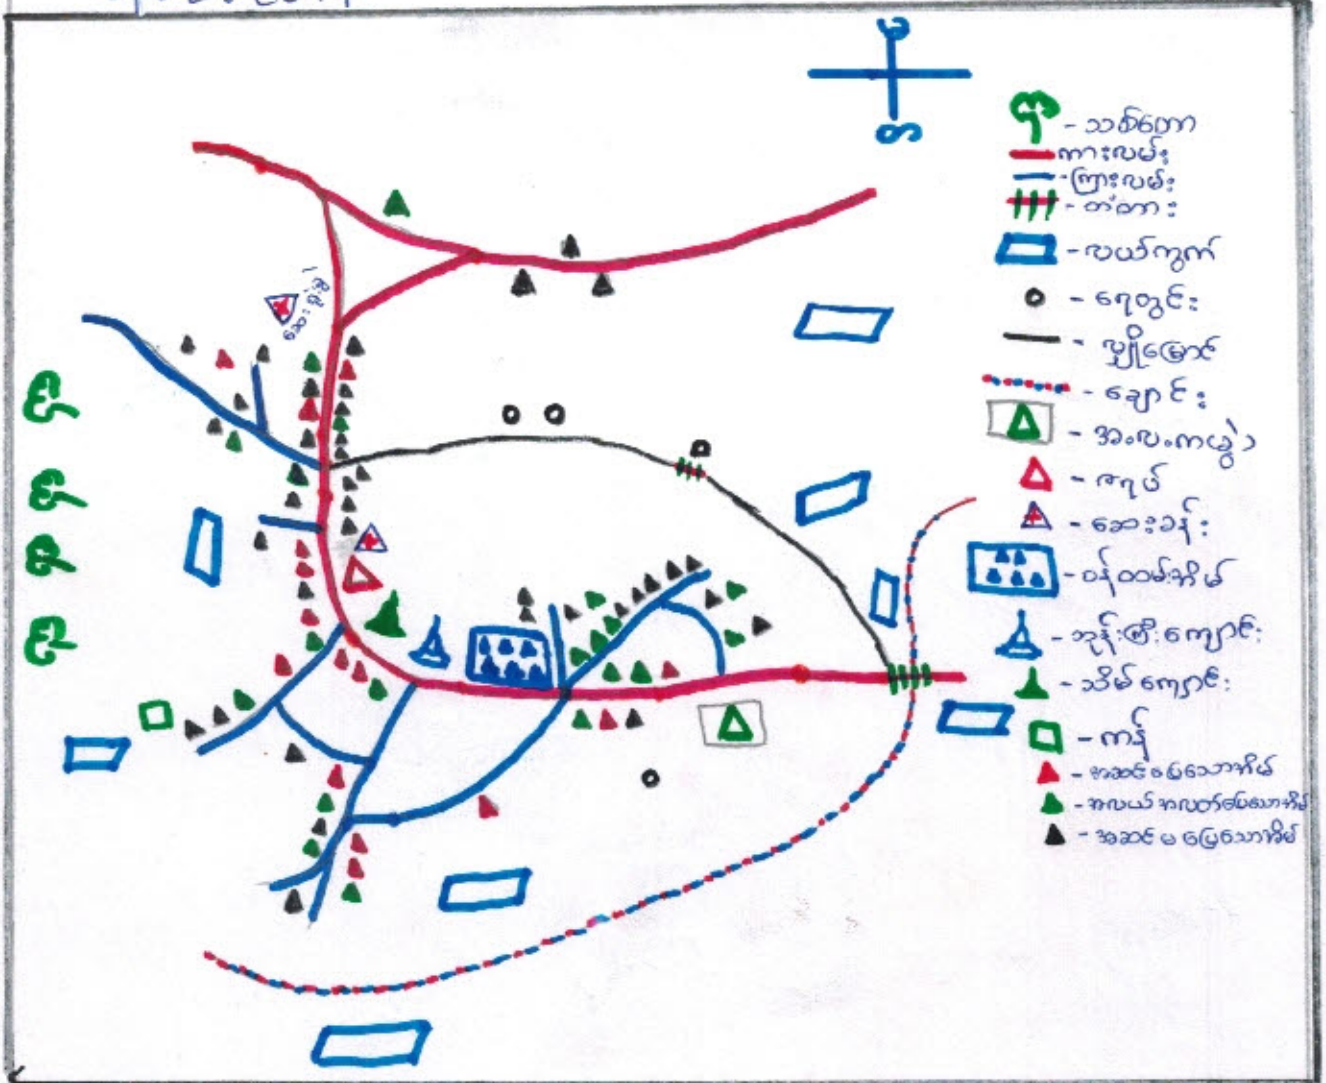 မ
တ
- သစ်တော
ကားလမ်း
- ကြားလမ်း
- တံတား
- လယ်ကွက်
- ရေတွင်း
- လျှိုမြောင်
- ချောင်း
- အ.လ.က
- ဇရပ်
- ဆေးခန်း
- ဝန်ထမ်းအိမ်
- ဘုန်းကြီးကျောင်း
- သိမ်ကျောင်း
- ကန်
- အဆင်ပြေသောအိမ်
- အလယ်အလတ်ပြေသောအိမ်
- အဆင်မပြေသောအိမ်